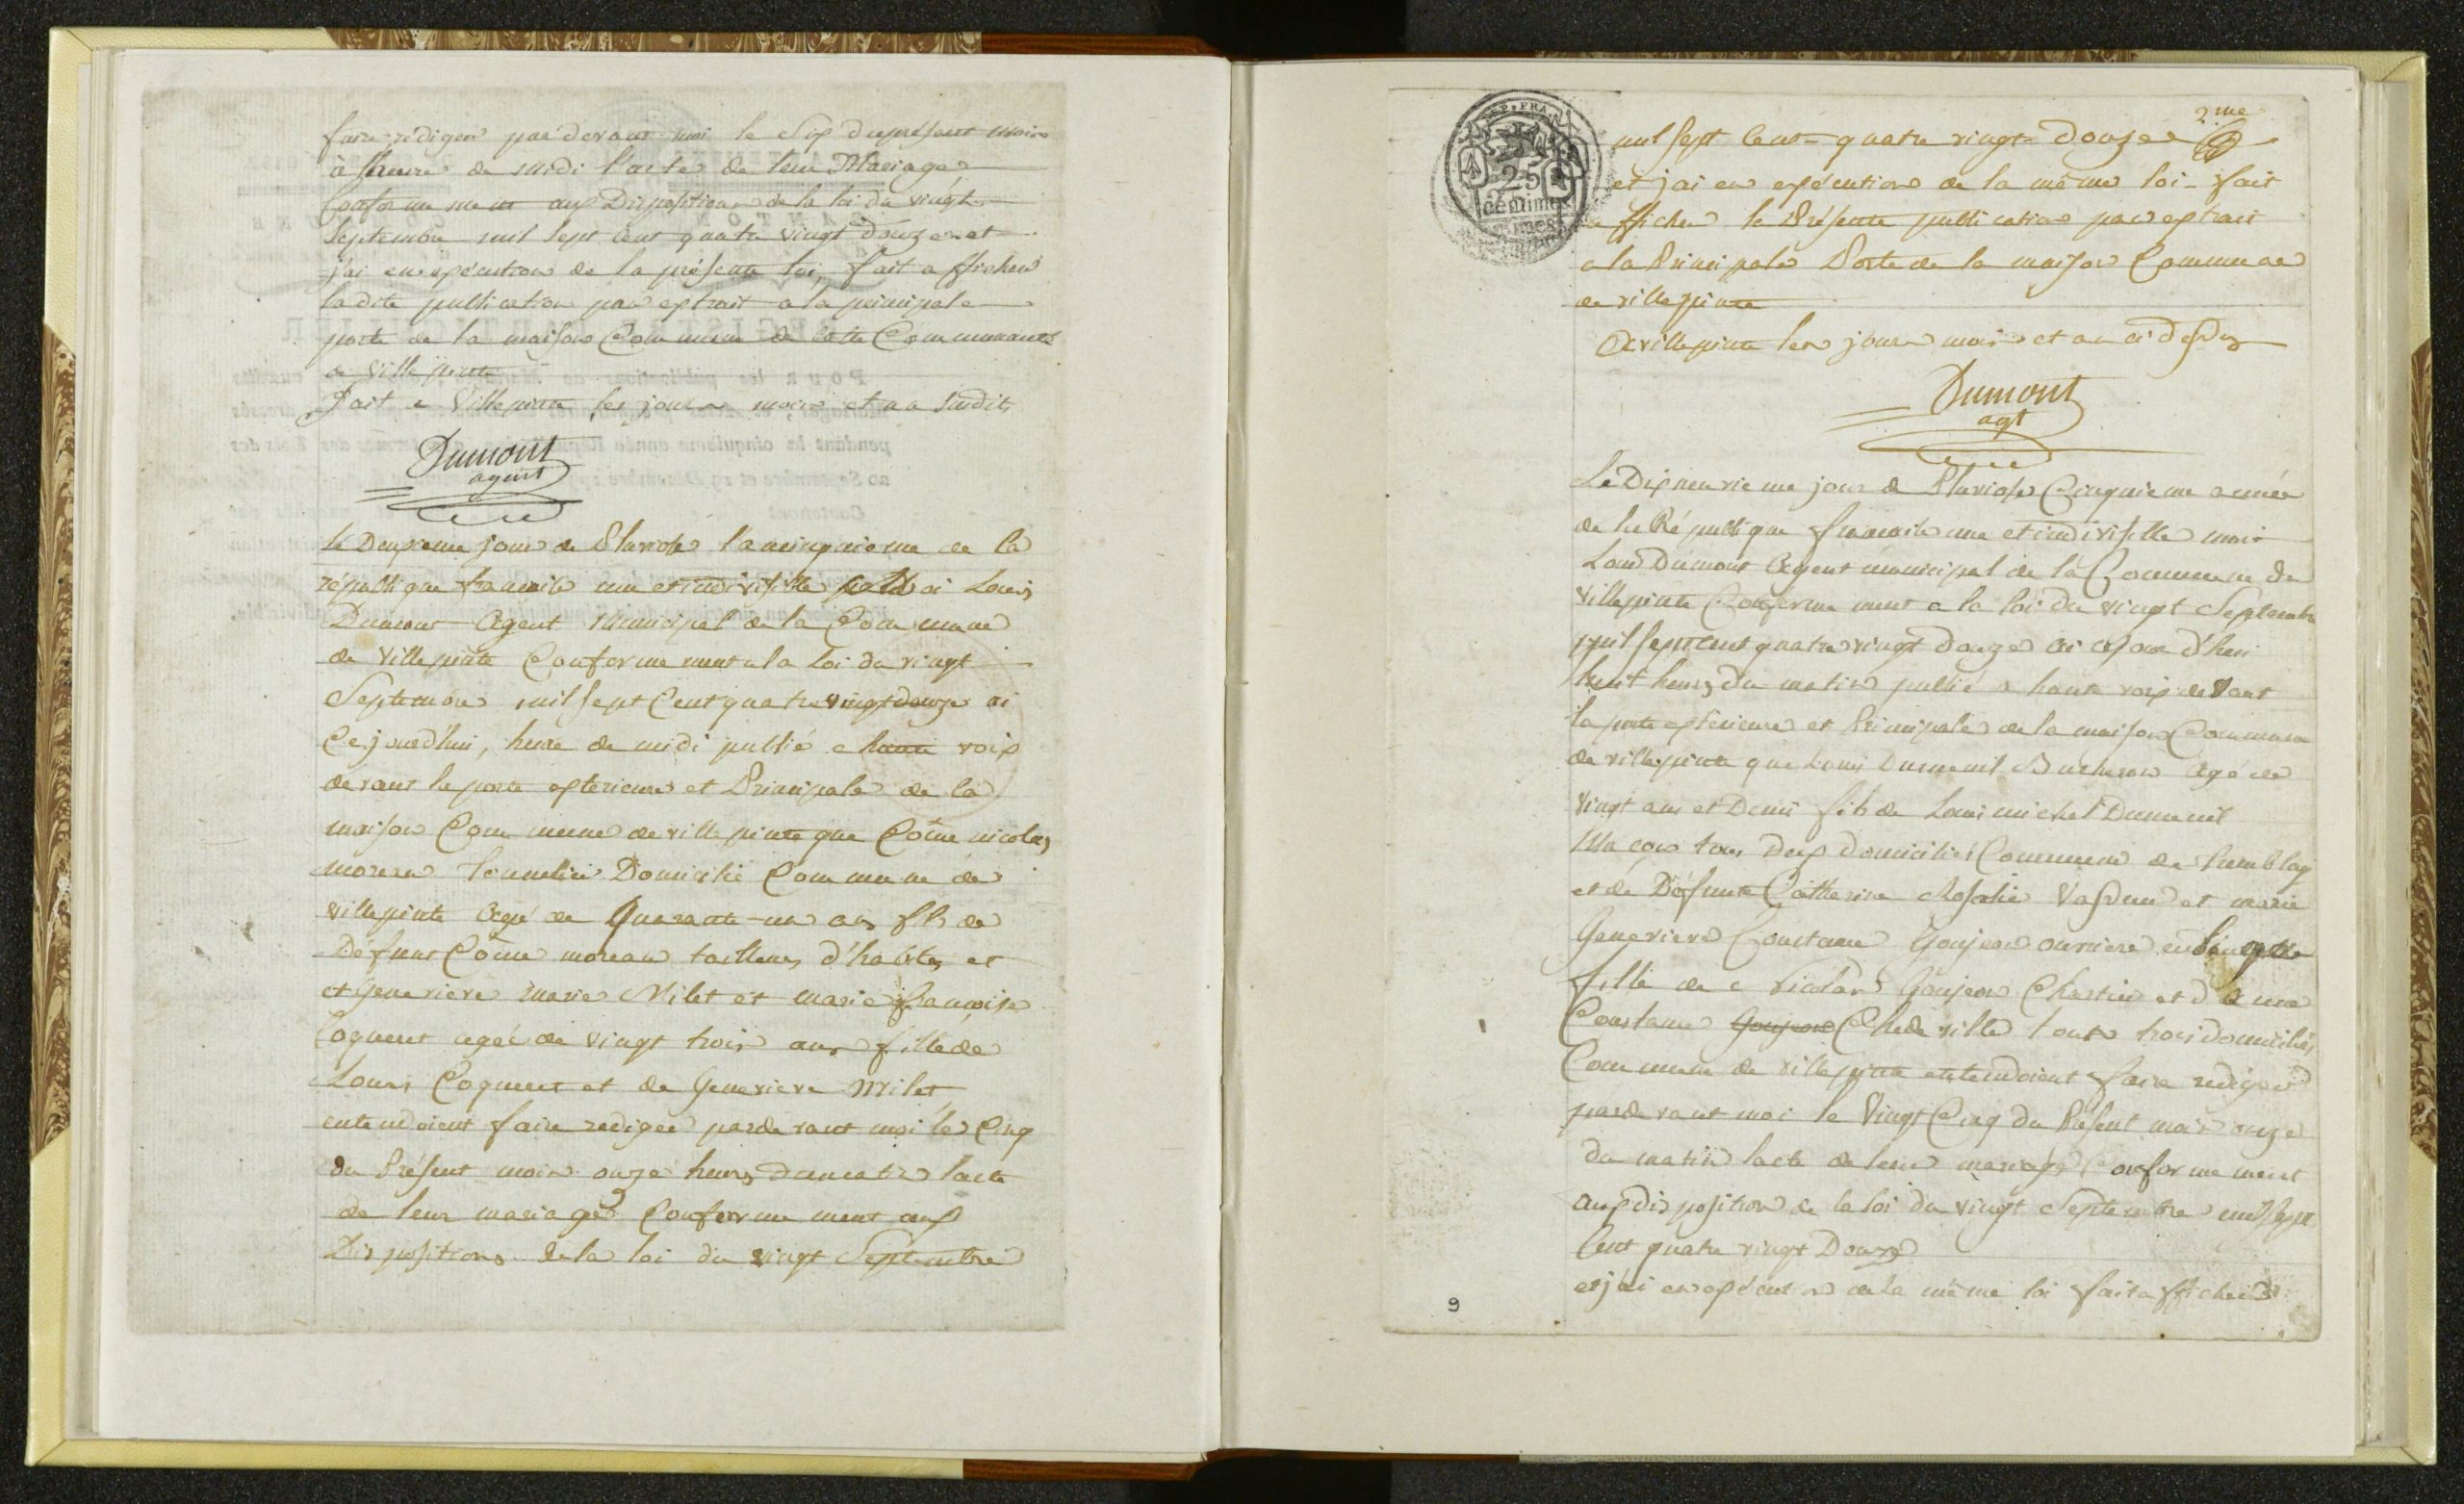 faire rédiger par devant moi le Six du présent mois
à l'heure de midi l'acte de leur Mariage
Conformement aux Dispositions de la loi du vingt
Septembre mil Sept Cent quatre vingt douze et
j'ai en exécution de la présente loi, fait afficher
ladite publication par extrait a la principale
porte de la maison Commune de cette Communauté
de Villepinte
Fait a Villepinte les jour mois et an susdits
Dumont
agent
le Deuxieme jour de Pluviose l'an cinquieme de la
république francaise une et indivisible moi Louis
Dumont Agent Municipal de la Commune
de Villepinte Conformement a la Loi du vingt
Septembre mil sept Cent quatre vingt douze ai
Cejourd'hui, heure de midi publié a haute voix
devant la porte exterieure et Principale de la
maison Commune de villepinte que Côme nicolas
moreau Domicilié Commune de
villepinte Agé de Quarante-un ans fils de
Défunt Côme moreau tailleur d'habits et
et Genevieve marie Milet et marie francoise
Coqueret agée de vingt trois ans fille de
Louis Coqueret et de Genevieve Milet
entendoient faire rediger pardevant moi le Cinq
du Présent mois onze heures du matin l'acte
de leur mariage Conformement aux
Dispositions de la loi du vingt Septembre
2me
mil sept Cent quatre vingt Douze
et j'ai en exécution de la même loi fait
afficher la Présente publication par extrait
a la Principale Porte de la maison Commune
de villepinte
A villepinte les jour mois et an ci dessus
Dumont
agt
Le Dixneuvieme jour de Pluviose Cinquieme année
de la République francaise une et indivisible moi
Louis Dumont Agent municipal de la Commune de
Villepinte Conformement a la loi du vingt Septembre
mil sept Cent quatre vingt douze ai cejour d'hui
huit heures du matin publié a haute voix devant
la porte extérieure et Principale de la maison Commune
de villepinte que Louis Dumenil Bucheron Agé de
Vingt ans et Demi fils de Louis michel Dumenil
Macon tous Deux domiciliés Commune de Tremblay
et de Défunte Catherine Rosalie et marie
Genevieve Constance Goujeon ouvriere en
fille de Nicolas Goujeon et d'Anne
Constance Goujeon Chedeville toutes trois domiciliés
Commune de villepinte entendoient faire rediger
pardevant moi le Vingt Cinq du Présent mois onze
du matin l'acte de leur mariage Conformement
aux disposition de la loi du vingt Septembre mil sept
Cent quatre vingt Douze
et j'ai en exécution de la même loi fait afficher
REP. FRA
25
centimes
9